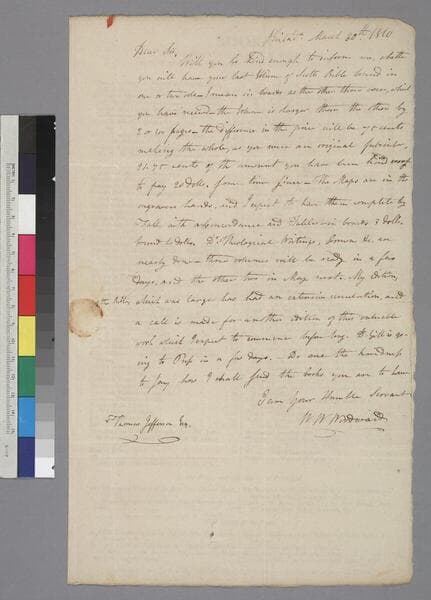 Philad.ª March 30th 1810
Dear Sir,
Will you be kind enough to inform me, whether
you will have your last Volume of Scotts Bible bound in
one or two vols— I mean in boards as the other three were, which
you have received the Volume is larger than the other by
pages— the difference in the price will be 75 cents
making the whole, as you were an original subscriber,
21.75 cents of the amount you have been kind enough
to pay 20 dolls. some time since— The Maps are in the
engravers hands, and I expect to have them complete by
Fall with and Tables in boards 3 dolls.
bound 4 dolls. Dr Theological Writings, Sermons &c. are
nearly done— three volumes will be ready in a few
days, and the other two in May next. My edition,
of the Bible, which was large has had an extensive circulation, and
a call is made for another edition of this valuable
work which I expect to commence before long. Dr Gill is go-
ing to Press in a few days. Do me the kindness
to say how I shall send the books you are to have
I am Your Humble Servant
W W Woodward
Thomas Jefferson Esq.